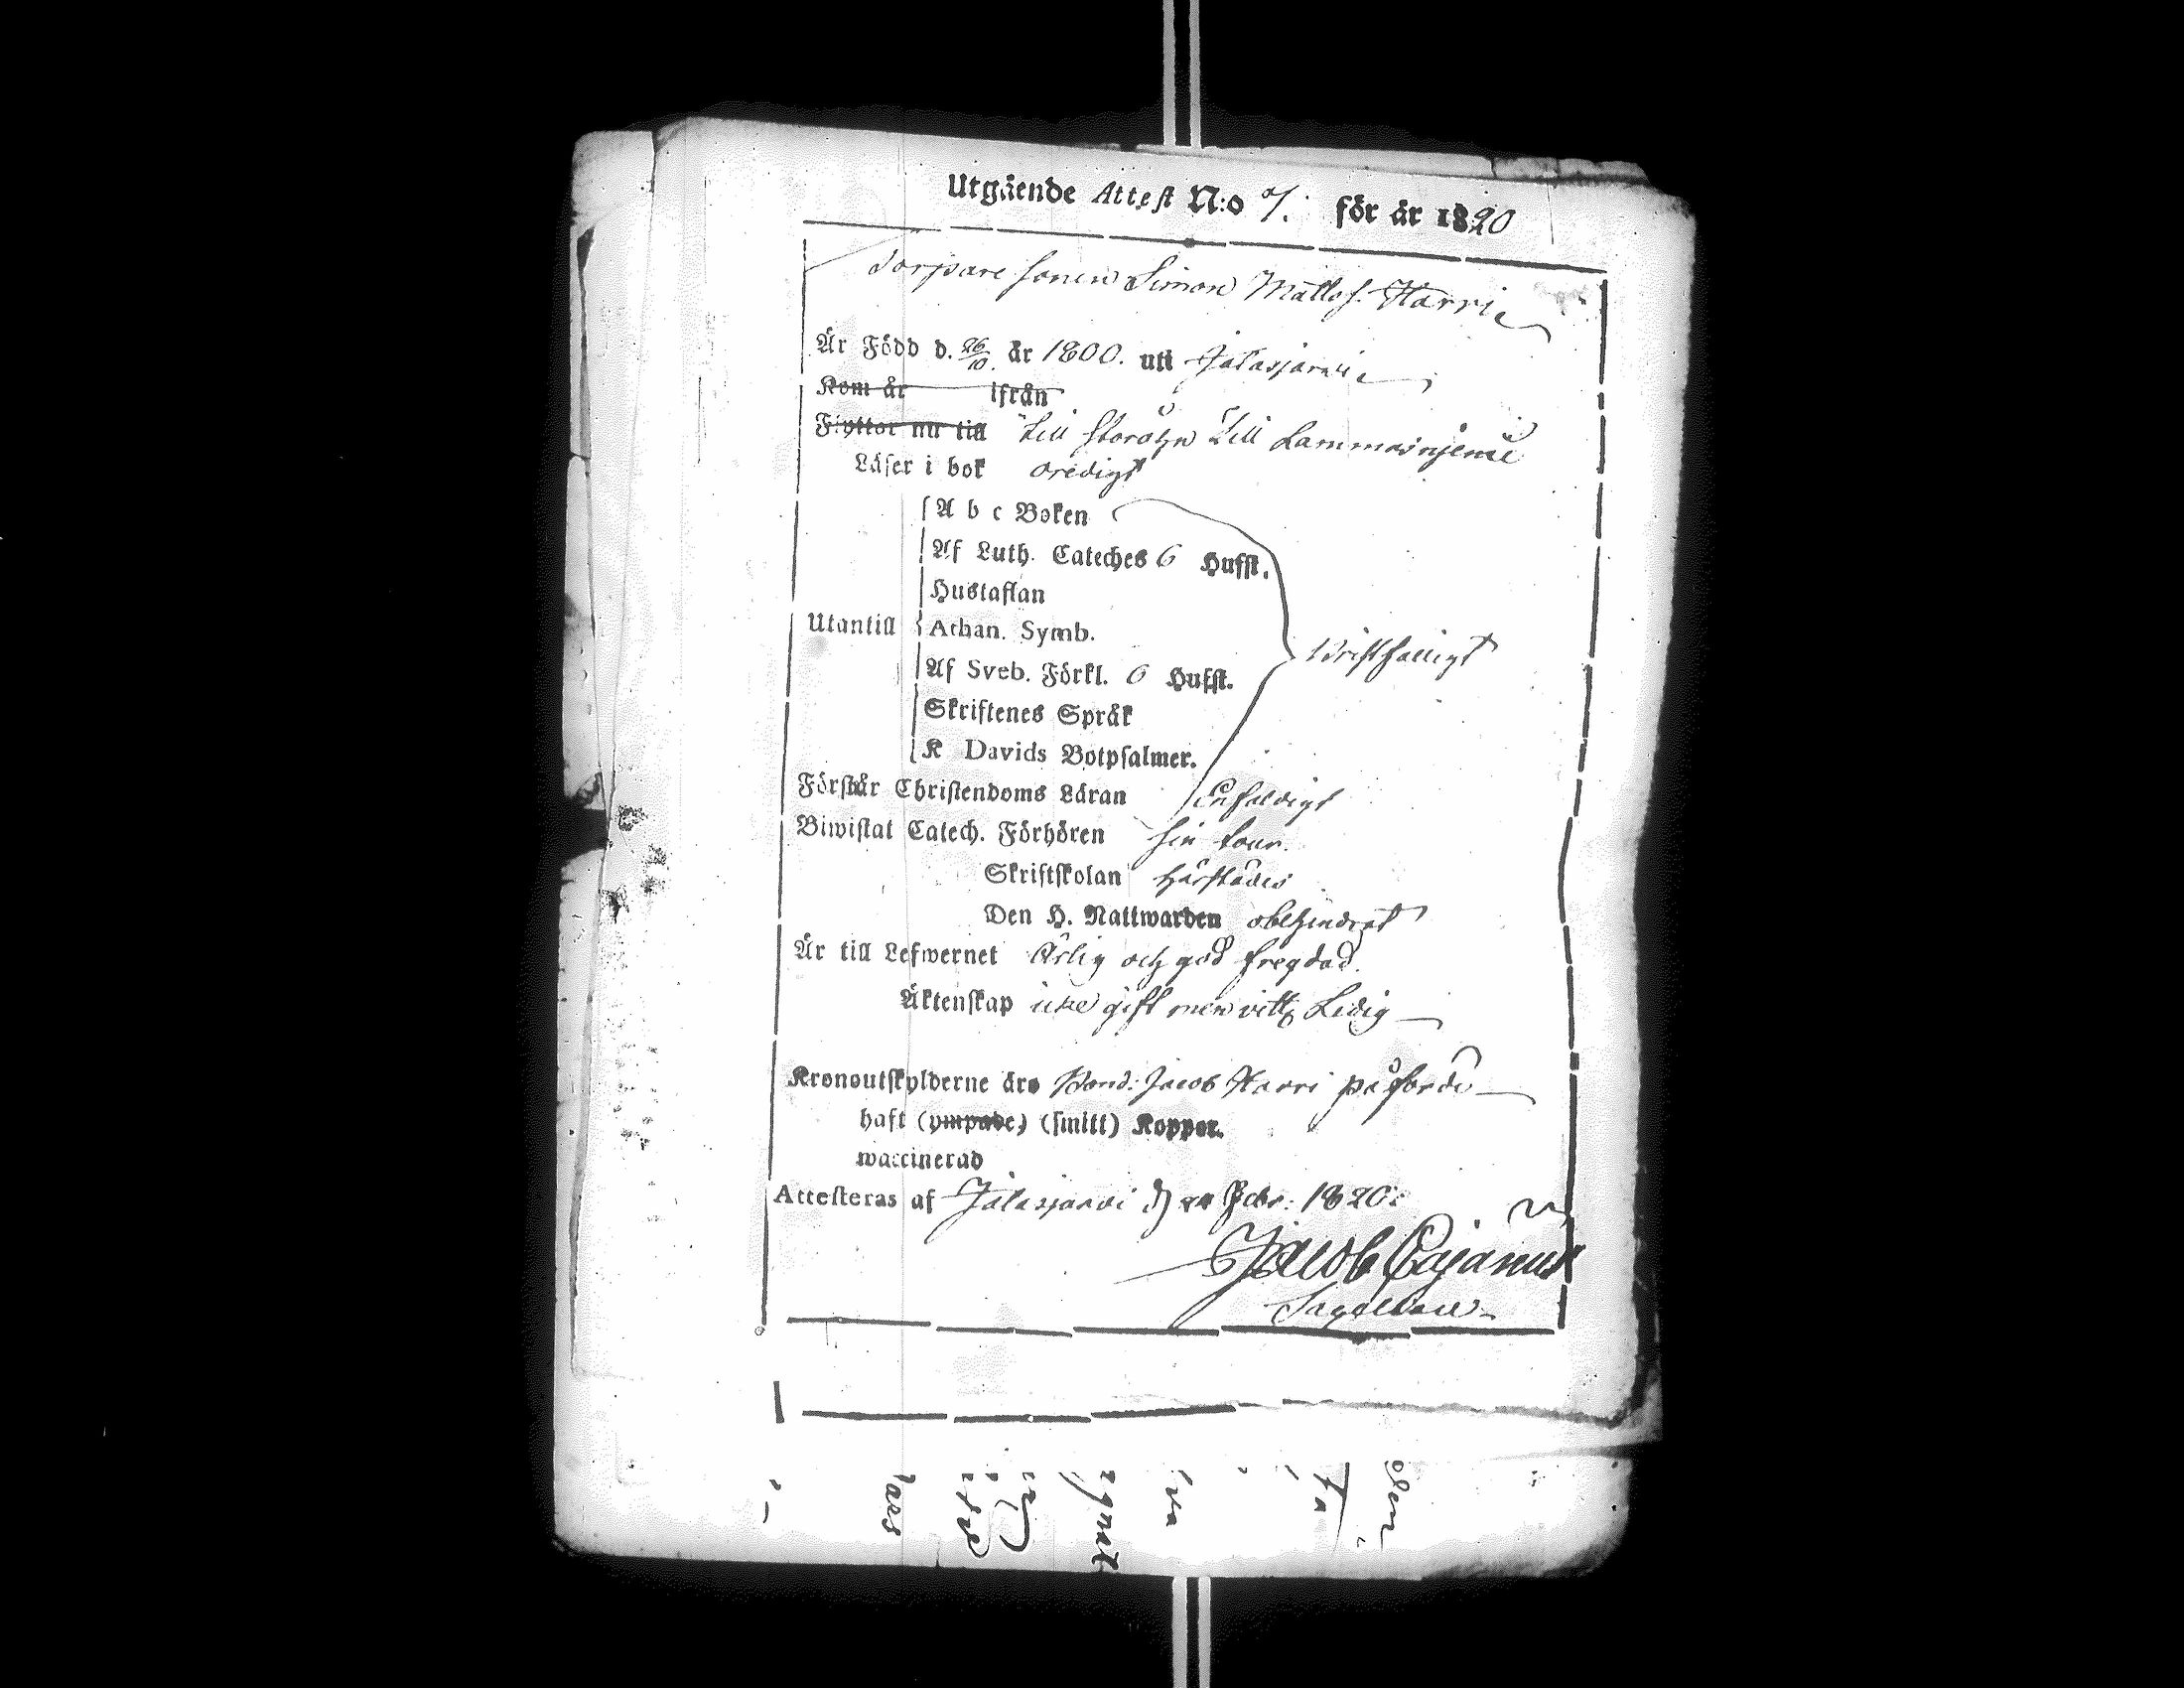 Utgående Attest N:o 7. för år 1820
Torpare sonen Simon Mattss. Harri
Är Född d. 26/10. år 1800. uti Jalasjarvi
Kom år ifrån
Flyttar nu till till till Lammasnjemi
Läser i bok oredigt
A b c Boken
Af Luth. Cateches 6 Hufst.
Hustaflan
Utantill Athan. Symb. Bristfälligt
Af Sveb. Förkl. 6 Hufst.
Skriftenes Språk
K Davids Botpsalmer.
Förstår Christendoms Läran Enfaldigt
Biwistat Catech. Förhören sin tour.
Skriftskolan härstädes
Den H. Nattwarden obehindrat
Är till Lefwernet Ärlig och god fregdad.
Äktenskap icke gift men Ledig
Kronoutskylderne äro Bond. Jacob Harri påförde
haft (ympade) (smitt) Koppor.
waccinerad
Attesteras af Jalasjarvi Febr: 1820:
Jacob Cajanus